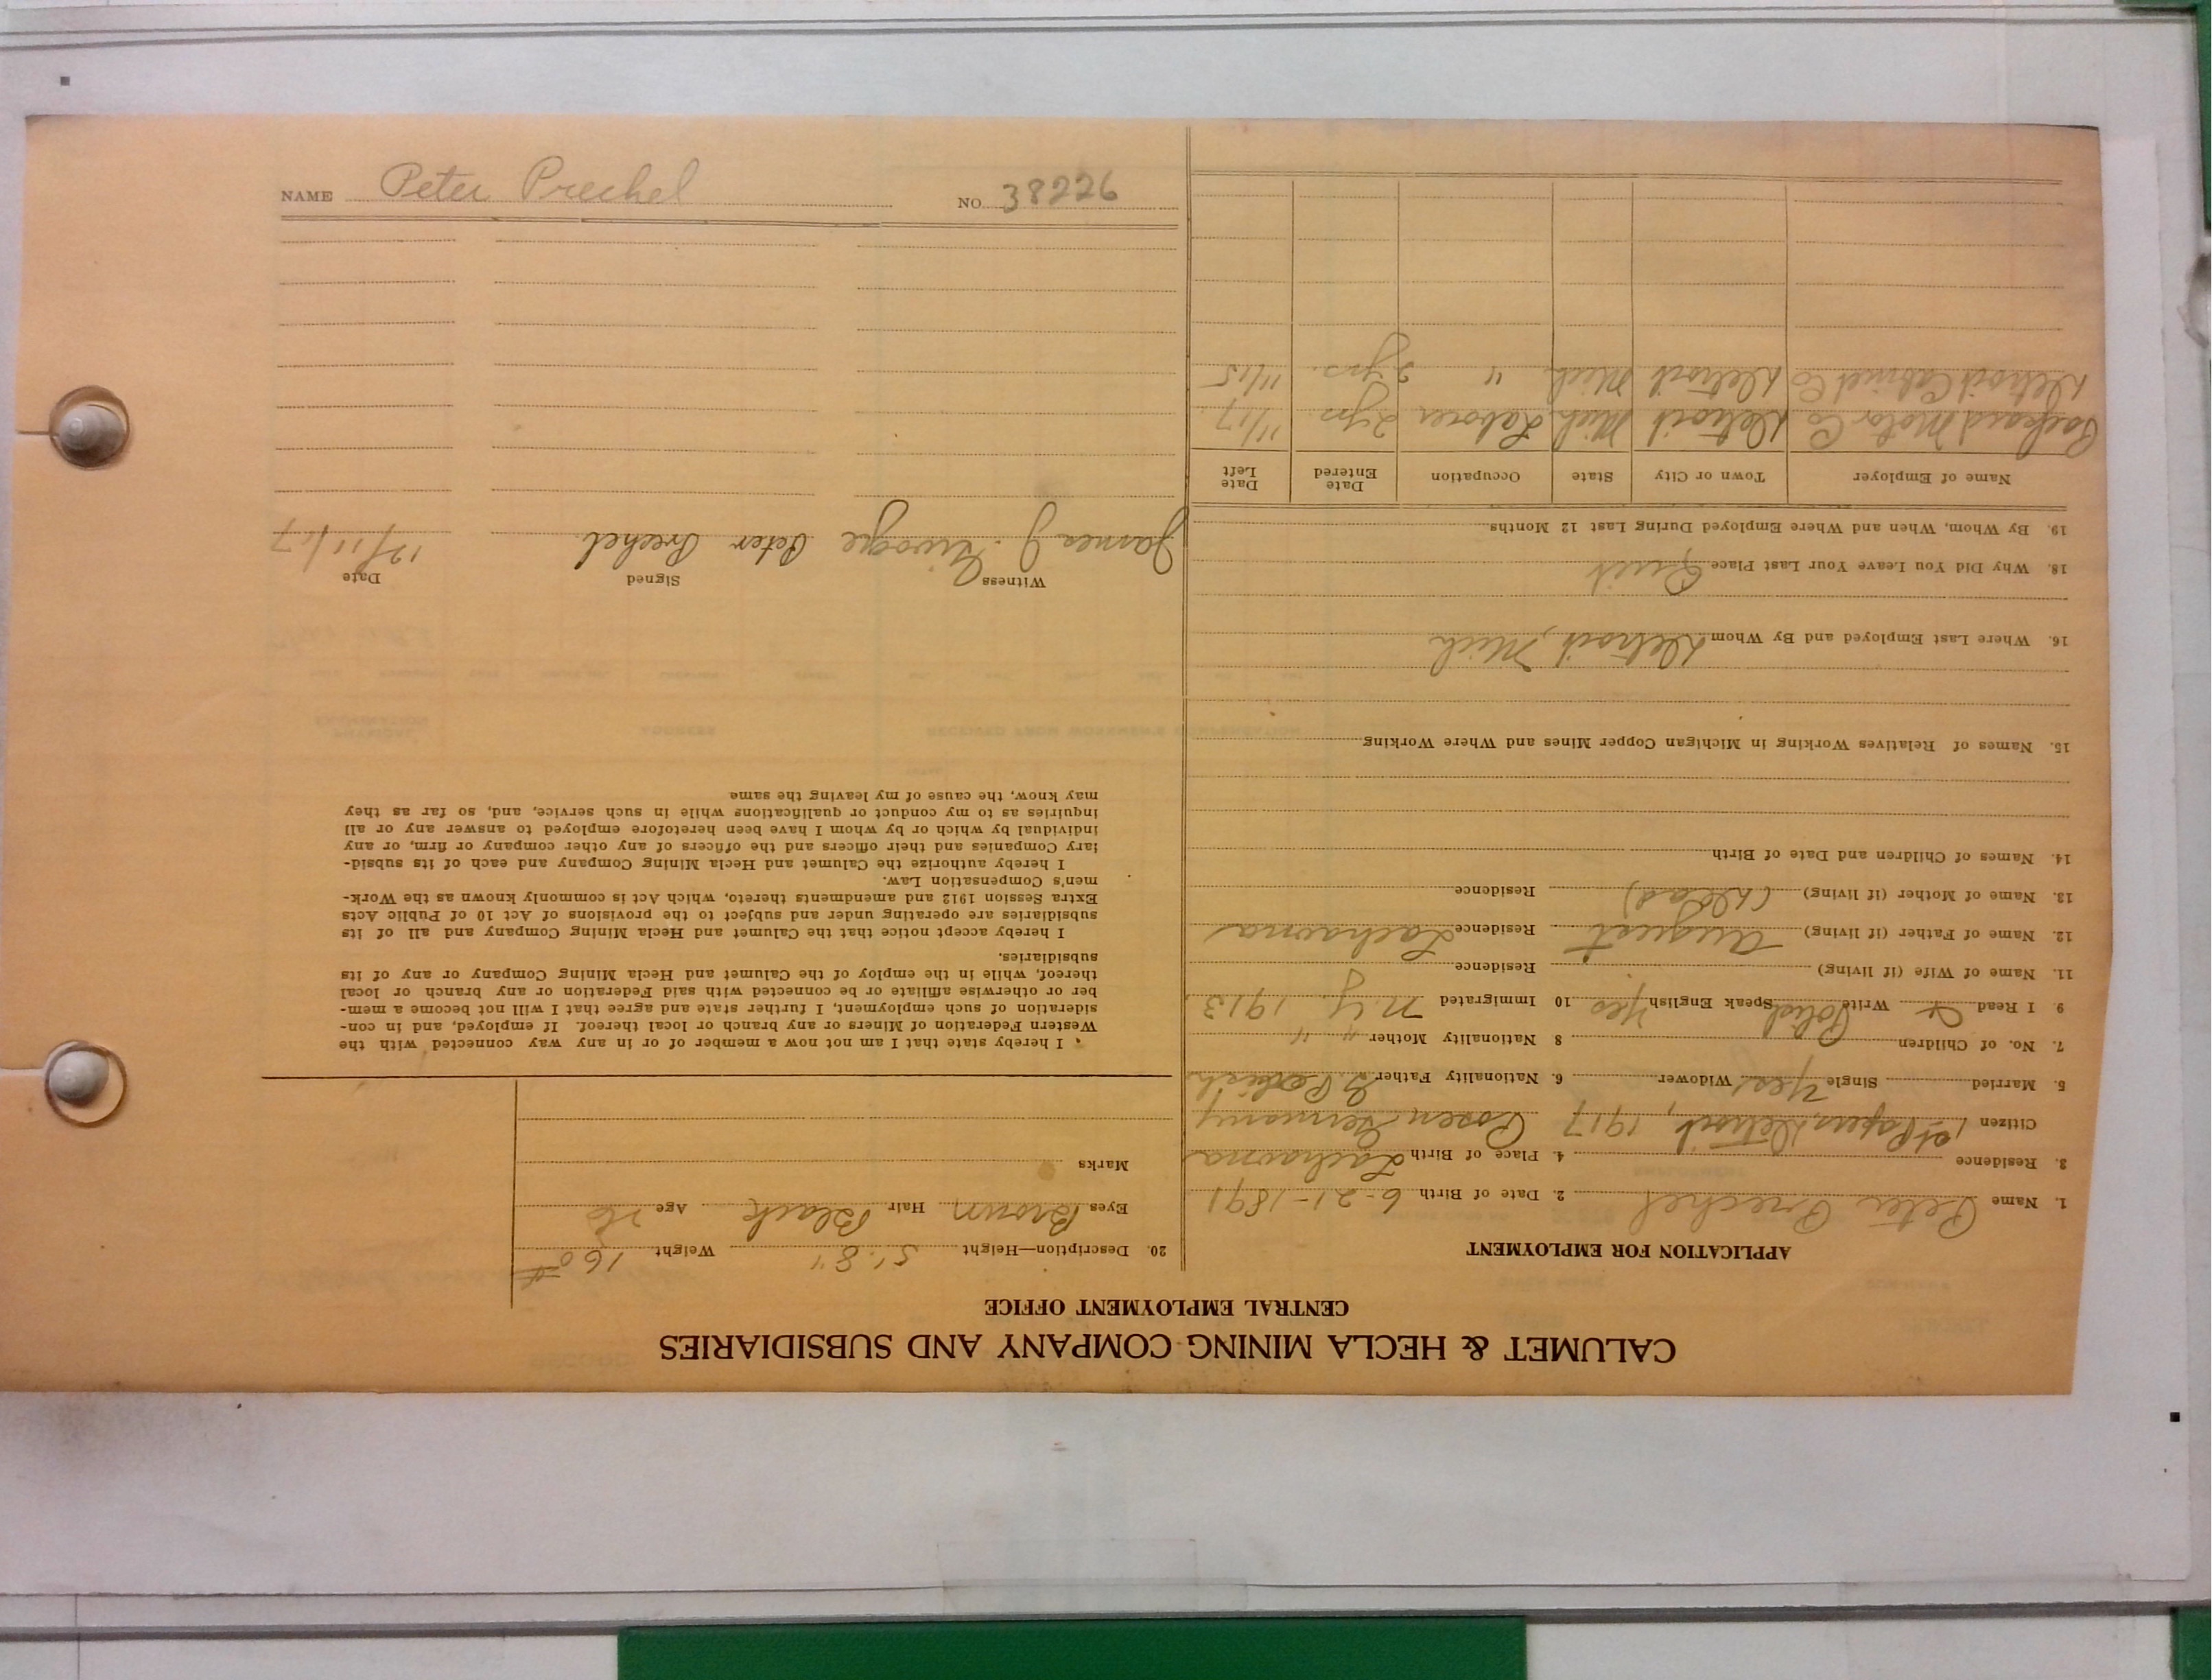 CALUMET & HECLA MINING COMPANY AND SUBSIDIARIES
CENTRAL EMPLOYMENT OFFICE
APPLICATION FOR EMPLOYMENT
1. Name Peter Prechel 2. Date of Birth 6-21-1891
3. Residence 4. Place of Birth Lachowna
Citizen 1st Papers, Detroit, 1917 Posen Germany
5. Married Single Yes Widower 6. Nationality Father G. Polish
7. No. of Children 8 Nationality Mother " "
9 I Read & Write Polish Speak English Yes 10 Immigrated N.Y. 1913
11. Name of Wife (if living) Residence
12. Name of Father (if living) August Residence Lachowna
13. Name of Mother (if living) (Dead) Residence
14. Names of Children and Date of Birth
15. Names of Relatives Working in Michigan Copper Mines and Where Working
16. Where Last Employed and By Whom Detroit, Mich
18. Why Did You Leave Your Last Place Quit
19. By Whom, When and Where Employed During Last 12 Months
Name of Employer Town or City State Occupation Date Entered Date Left
Packard Motor Co Detroit Mich Laborer 2 yrs. 11/17
Detroit Cabinet Co Detroit Mich. " 2 yrs. 11/15
20. Description—Height 5' 8" Weight 160 #
Eyes Brown Hair Black Age 26
Marks
I hereby state that I am not now a member of or in any way connected with the
Western Federation of Miners or any branch or local thereof. If employed, and in con-
sideration of such employment, I further state and agree that I will not become a mem-
ber or otherwise affiliate or be connected with said Federation or any branch or local
thereof, while in the employ of the Calumet and Hecla Mining Company or any of its
subsidiaries.
I hereby accept notice that the Calumet and Hecla Mining Company and all of its
subsidiaries are operating under and subject to the provisions of Act 10 of Public Acts
Extra Session 1912 and amendments thereto, which Act is commonly known as the Work-
men's Compensation Law.
I hereby authorize the Calumet and Hecla Mining Company and each of its subsid-
iary Companies and their officers and the officers of any other company or firm, or any
individual by which or by whom I have been heretofore employed to answer any or all
inquiries as to my conduct or qualifications while in such service, and, so far as they
may know, the cause of my leaving the same
Witness Signed Date
James J. Peter Prechel 12/11/17
NAME Peter Prechel NO. 38226